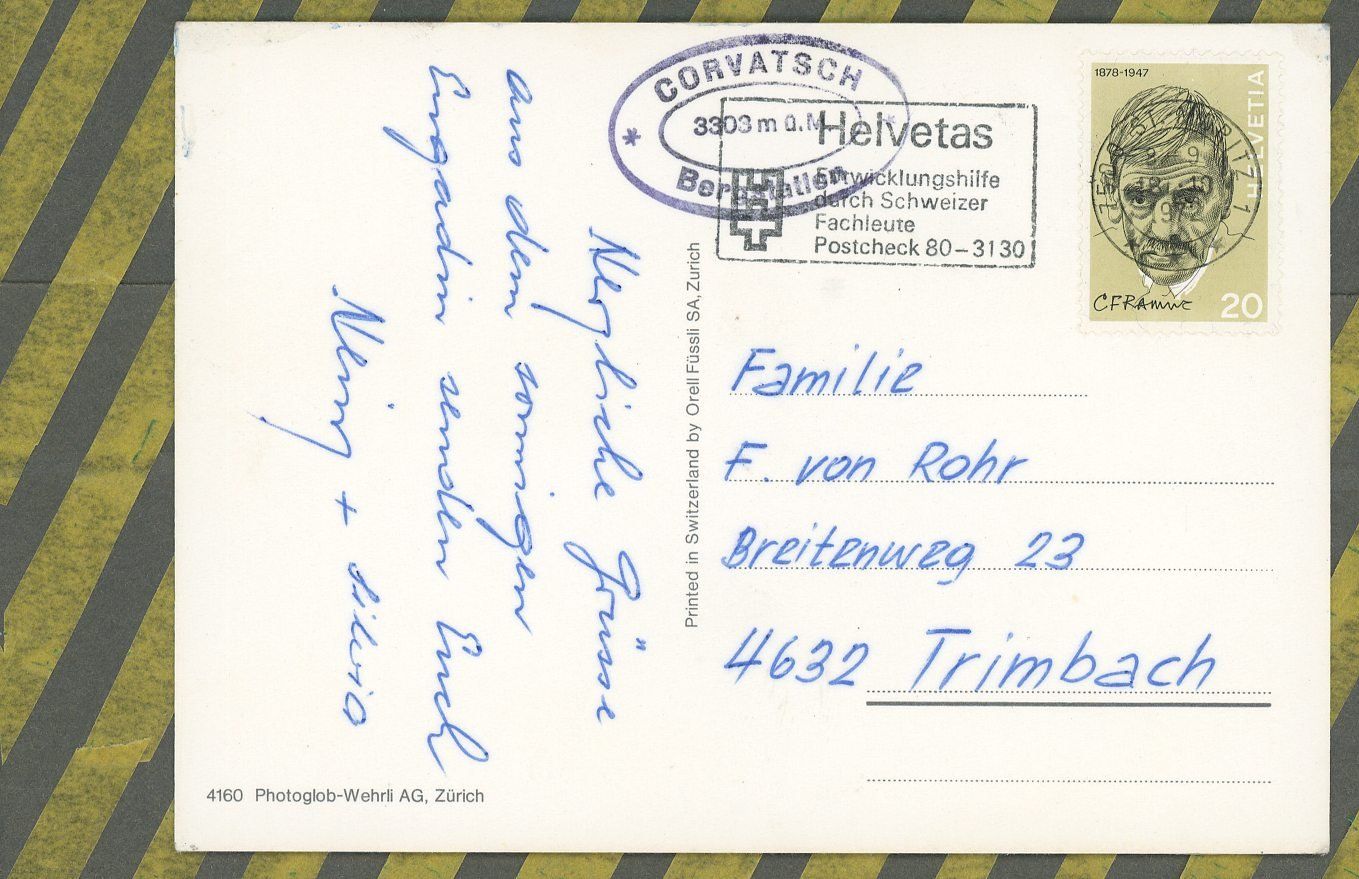 Herzliche Grüsse
aus dem sonnigen
Engadin senden Euch
+ Silvia
Printed in Switzerland by Orell Füssli SA, Zürich
4160 Photoglob-Wehrli AG, Zürich
CORVATSCH
3303 m ü.M.
Bergstation
Helvetas
Entwicklungshilfe
durch Schweizer
Fachleute
Postcheck 80-3130
1878-1947
HELVETIA
CFRamuz
20
Familie
F. von Rohr
Breitenweg 23
4632 Trimbach